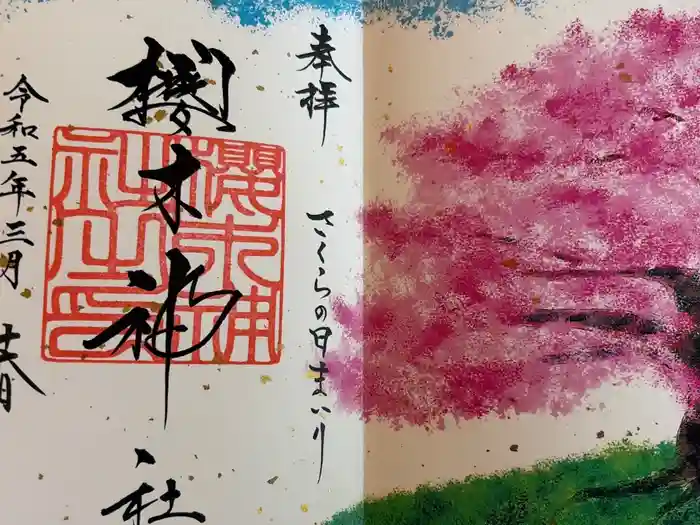 奉拝
さくらの日まいり
櫻木神社
櫻木神
社之印
令和五年三月